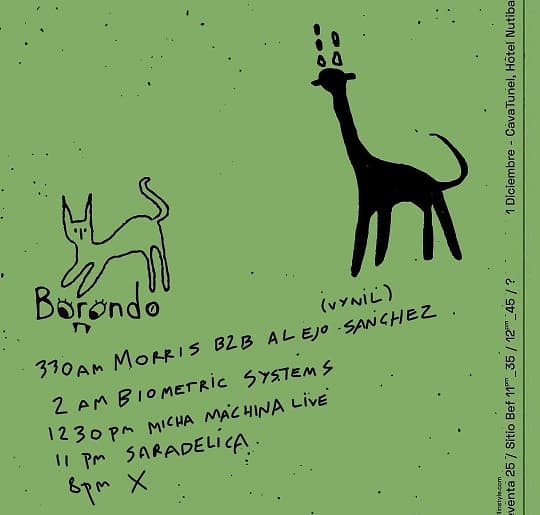 Borondo
(VYNIL)
330AM MORRIS B2B ALEJO SANCHEZ
2 AM BIOMETRIC SYSTEMS
1230 PM MICHA MACHINA LIVE
11 PM SARADELICA.
8pm X
1 Diciembre - CavaTunel, Hotel Nutiba
eventa 25 / Sitio Bef 11pm_35 / 12pm_45 / ?